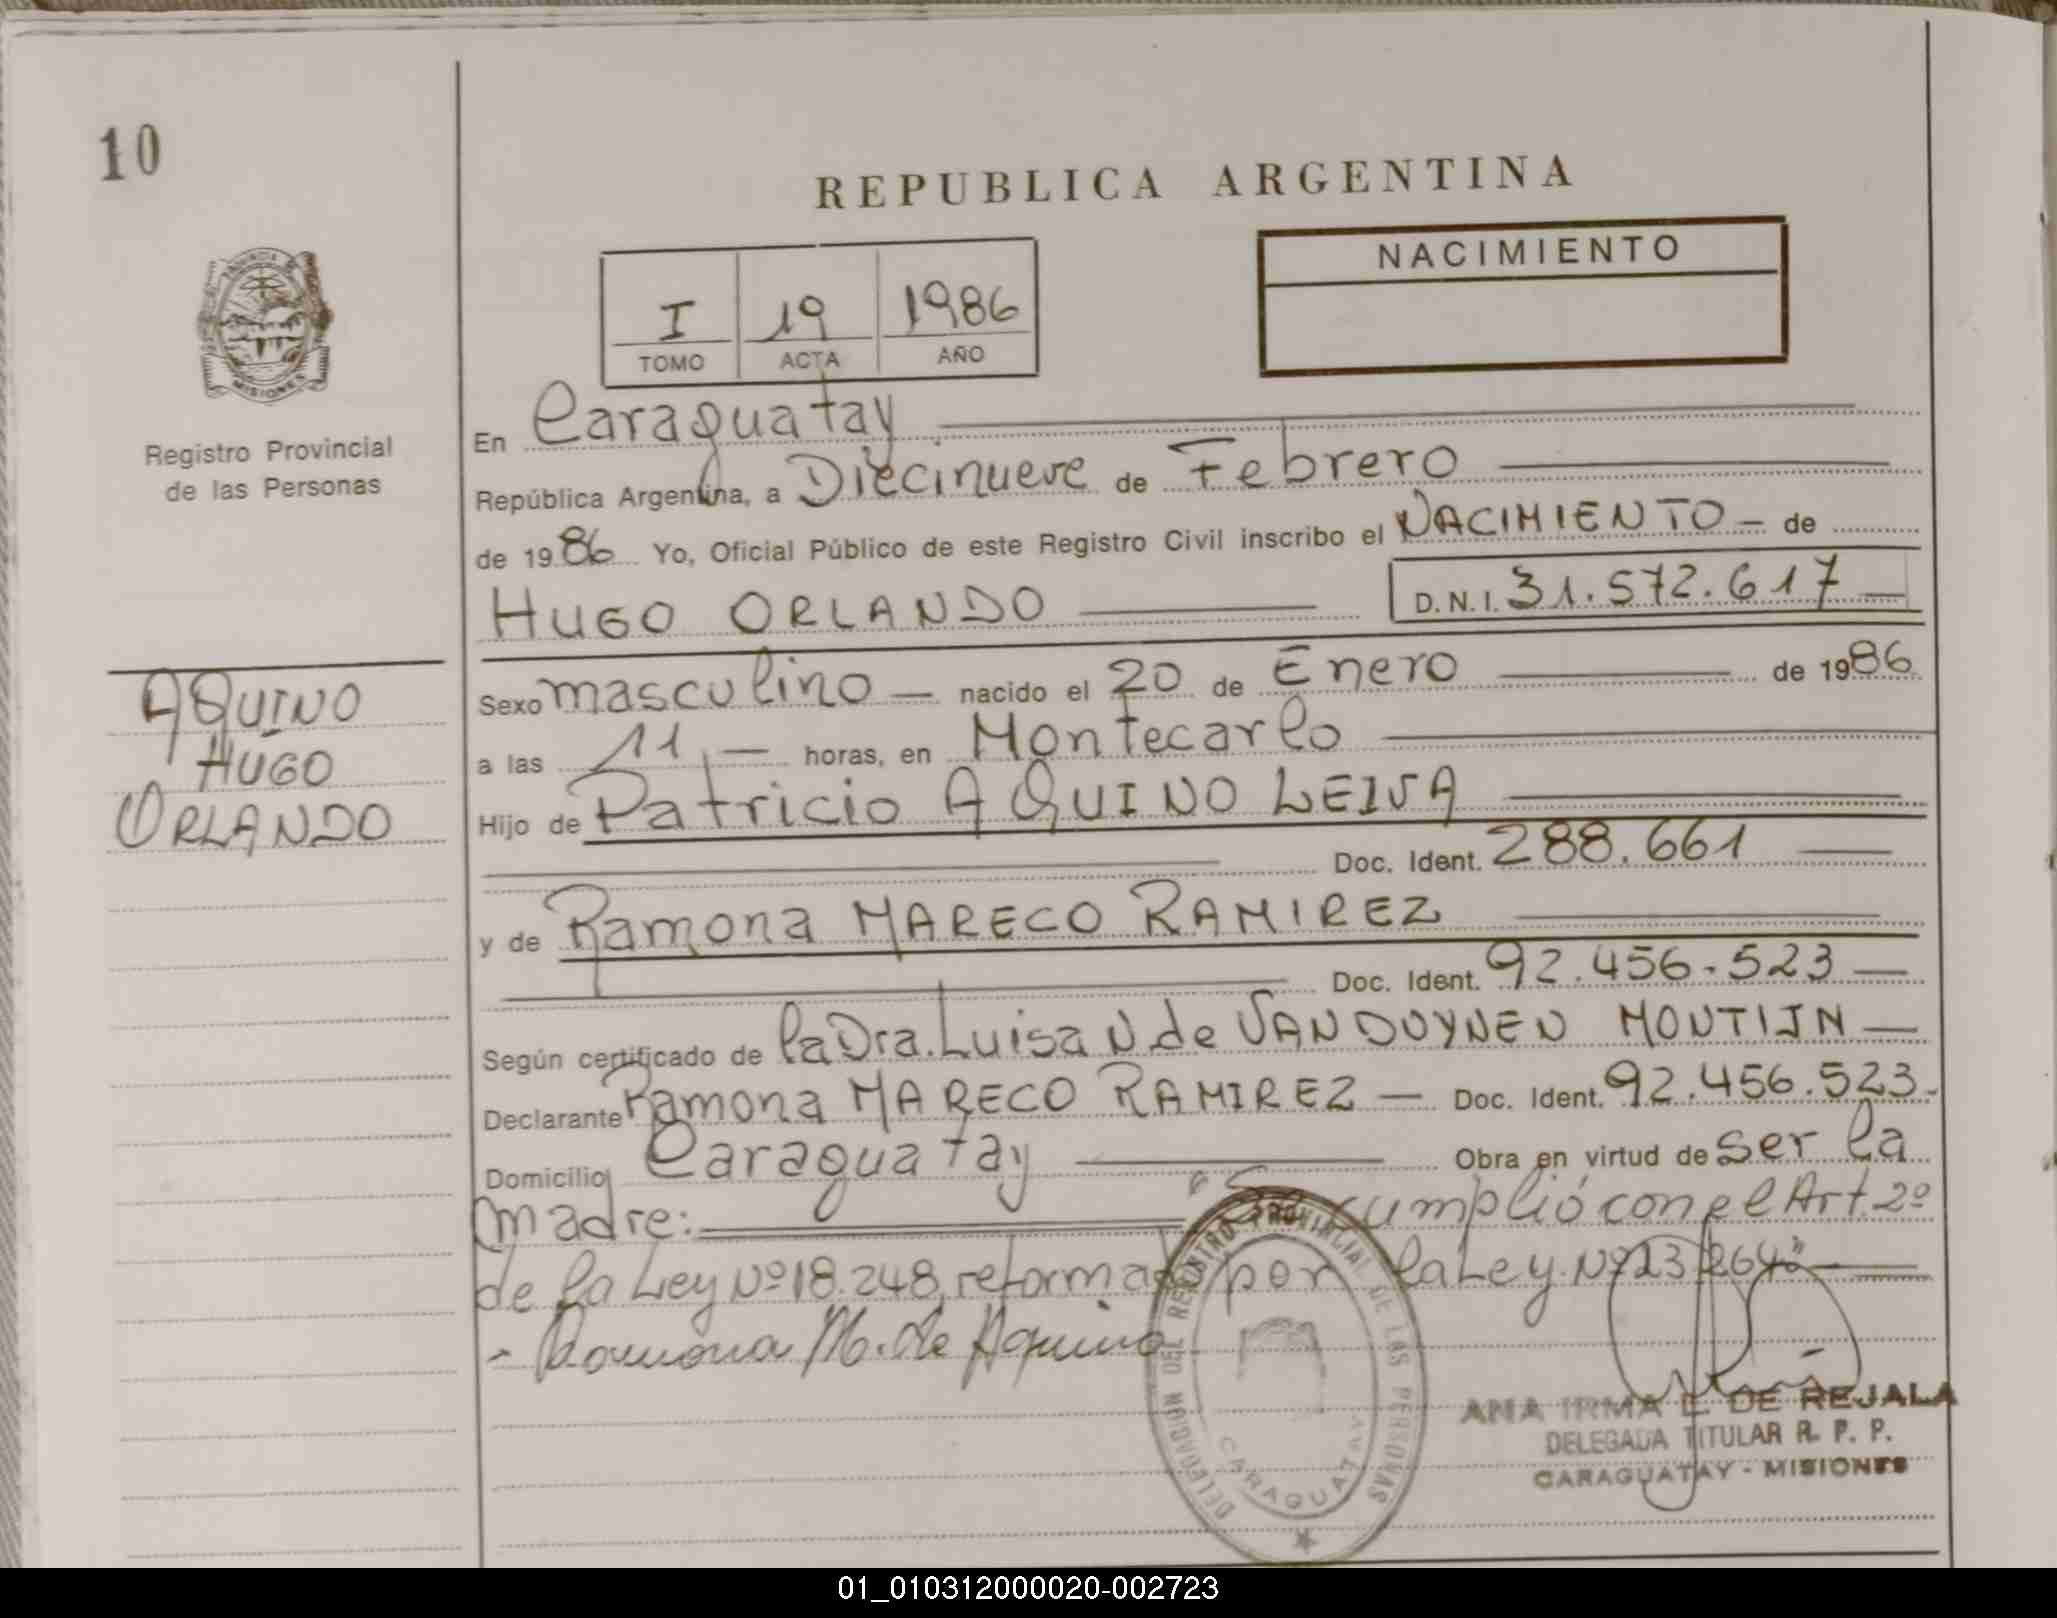 10
REPUBLICA ARGENTINA
NACIMIENTO
I 19 1986
TOMO ACTA AÑO
PROVINCIA DE
MISIONES
Registro Provincial
de las Personas
AQUINO
HUGO
ORLANDO
En Caraguatay
República Argentina, a Diecinueve de Febrero
de 1986 Yo, Oficial Público de este Registro Civil inscribo el NACIMIENTO – de
HUGO ORLANDO D.N.I. 31.572.617 —
Sexo masculino — nacido el 20 de Enero — de 1986
a las 11 — horas, en Montecarlo
Hijo de Patricio AQUINO LEIVA
Doc. Ident. 288.661 —
y de Ramona MARECO RAMIREZ
Doc. Ident. 92.456.523 —
Según certificado de la Dra. Luisa N de VANDUYNEN MONTIJN —
Declarante Ramona MARECO RAMIREZ — Doc. Ident. 92.456.523.-
Domicilio Caraguatay — Obra en virtud de ser la
madre: "Se cumplió con el Art. 2º
de la Ley Nº 18.248, reformado por la Ley Nº 23.264" —
- Ramona M. de Aquino
DELEGACION DEL REGISTRO PROVINCIAL DE LAS PERSONAS
CARAGUATAY
ANA IRMA L. DE REJALA
DELEGADA TITULAR R. P. P.
CARAGUATAY - MISIONES
01_010312000020-002723